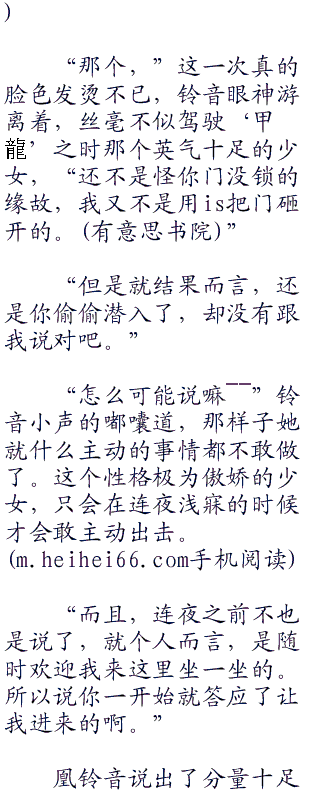 )
“那个，”这一次真的
脸色发烫不已，铃音眼神游
离着，丝毫不似驾驶‘甲
龍’之时那个英气十足的少
女，“还不是怪你门没锁的
缘故，我又不是用is把门砸
开的。(有意思书院)”
“但是就结果而言，还
是你偷偷潜入了，却没有跟
我说对吧。”
“怎么可能说嘛――”铃
音小声的嘟囔道，那样子她
就什么主动的事情都不敢做
了。这个性格极为傲娇的少
女，只会在连夜浅寐的时候
才会敢主动出击。
(m.heihei66.com手机阅读)
“而且，连夜之前不也
是说了，就个人而言，是随
时欢迎我来这里坐一坐的。
所以说你一开始就答应了让
我进来的啊。”
凰铃音说出了分量十足